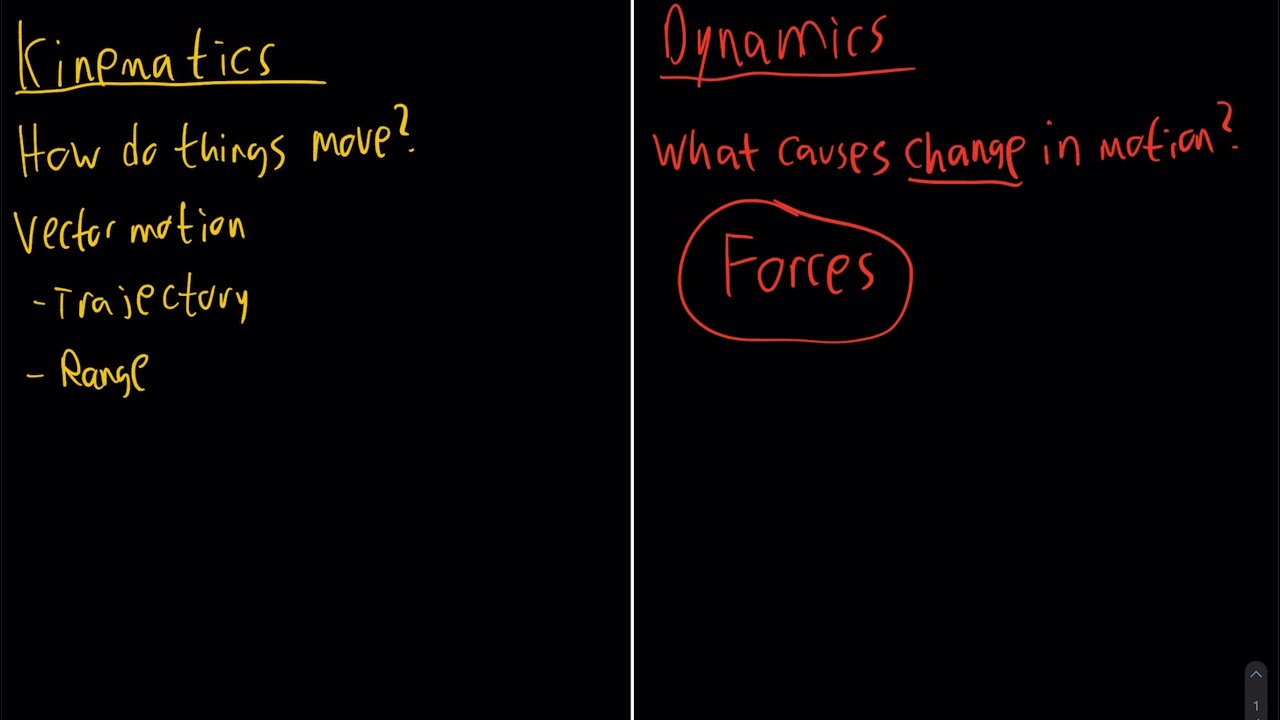 Kinematics
How do things move?
Vector motion
- Trajectory
- Range
Dynamics
What causes change in motion?
Forces
1